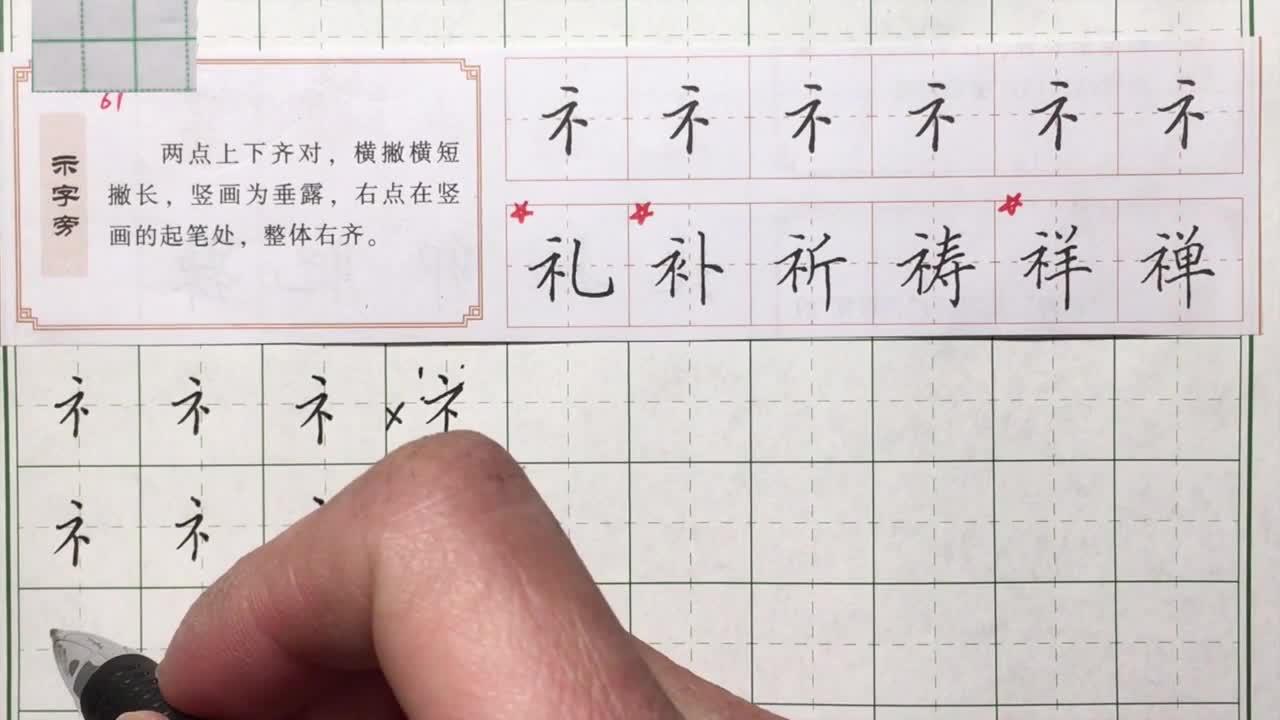 61
示字旁
两点上下齐对，横撇横短
撇长，竖画为垂露，右点在竖
画的起笔处，整体右齐。
礻 礻 礻 礻 礻 礻
礼 补 祈 祷 祥 禅
礻 礻 礻 × 礻
礻 礻